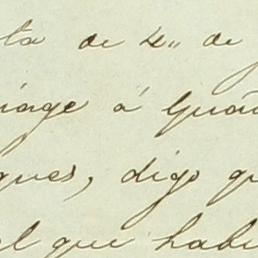 ta de 4" de
iage á Gua
ques, digo q
el que habi